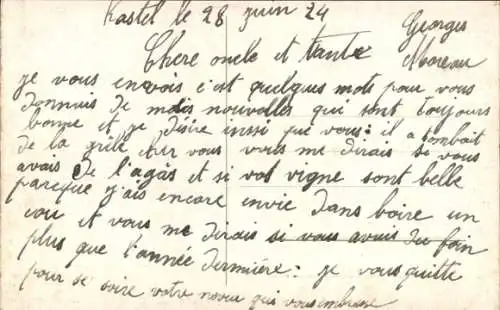 Kastel le 28 juin 24
Georges
Moreau
Chere oncle et tante
je vous envois c'est quelques mots pour vous
donnais de mais nouvelles qui sont toujours
bonne et je désire inssi que vous: il a tombait
de la grêle sur vous vous me dirais si vous
avais de l'agas et si vos vigne sont belle
parceque j'ais encore envie dans boire un
cou et vous me dirais si vous avais du foin
plus que l'année dernière: je vous quitte
pour se soire votre neveu qui vous embrasse